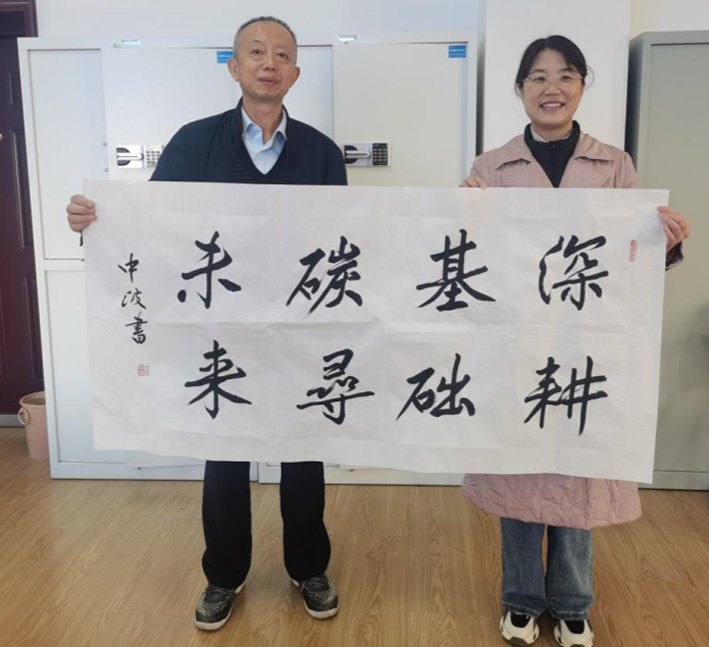 深耕
基础
碳尋
未来
中波書